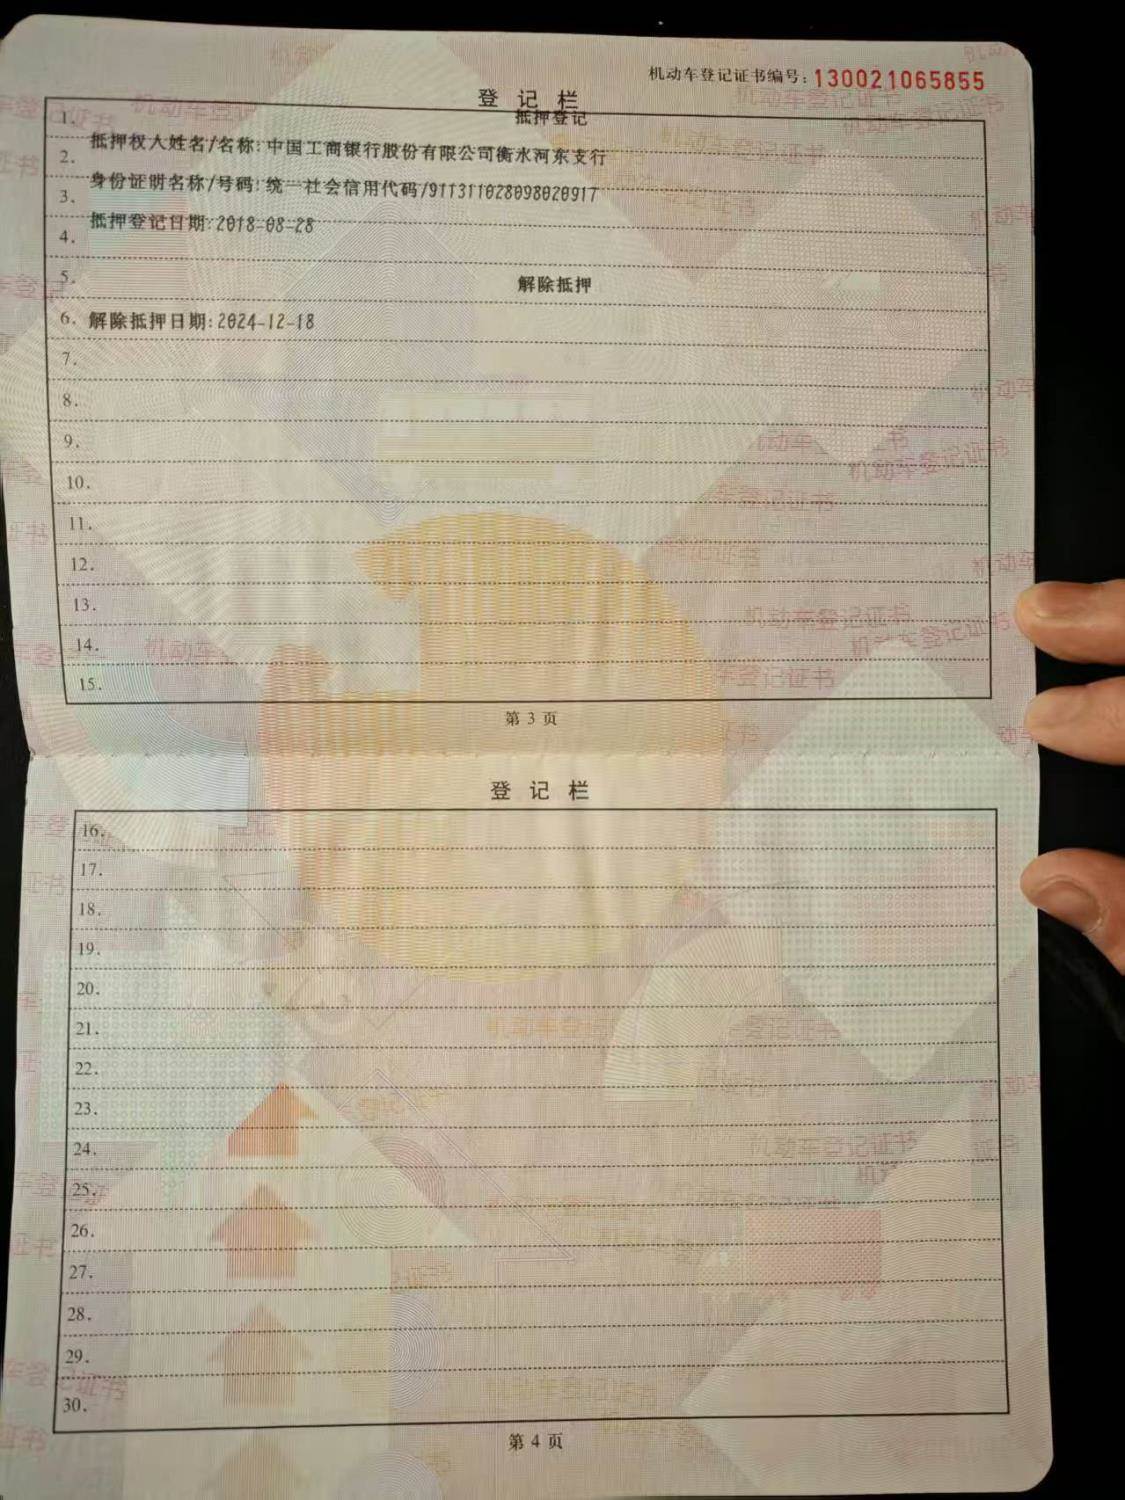 机动车登记证书编号:130021065855
登 记 栏
1. 抵押登记
2. 抵押权人姓名/名称:中国工商银行股份有限公司衡水河东支行
3. 身份证明名称/号码:统一社会信用代码/911311028098020917
4. 抵押登记日期:2018-08-28
5. 解除抵押
6. 解除抵押日期:2024-12-18
7.
8.
9.
10.
11.
12.
13.
14.
15.
第 3 页
登 记 栏
16.
17.
18.
19.
20.
21.
22.
23.
24.
25.
26.
27.
28.
29.
30.
第 4 页